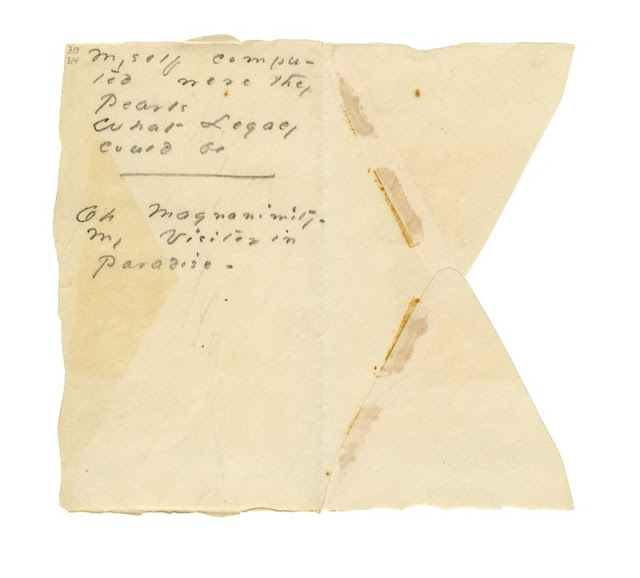 313
314
Myself compu-
ted were they
Pearls
What Legacy
could be
Oh Magnanimity -
My Visitor in
Paradise -